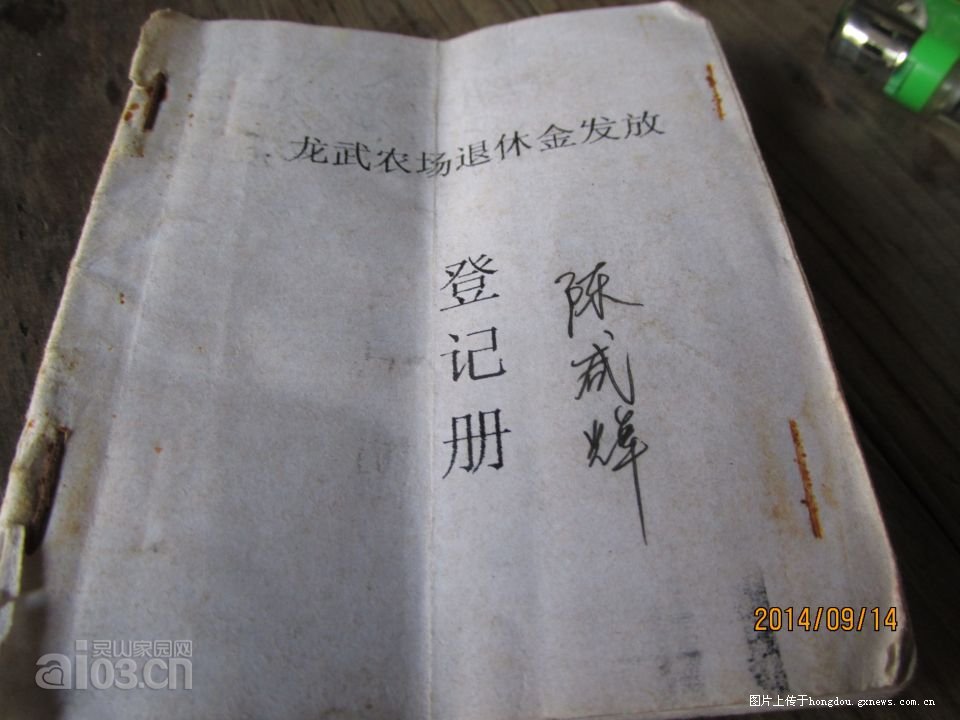 龙武农场退休金发放
登记册
陈武辉
2014/09/14
灵山家园网
ai03.cn
图片上传于hongdou.gxnews.com.cn